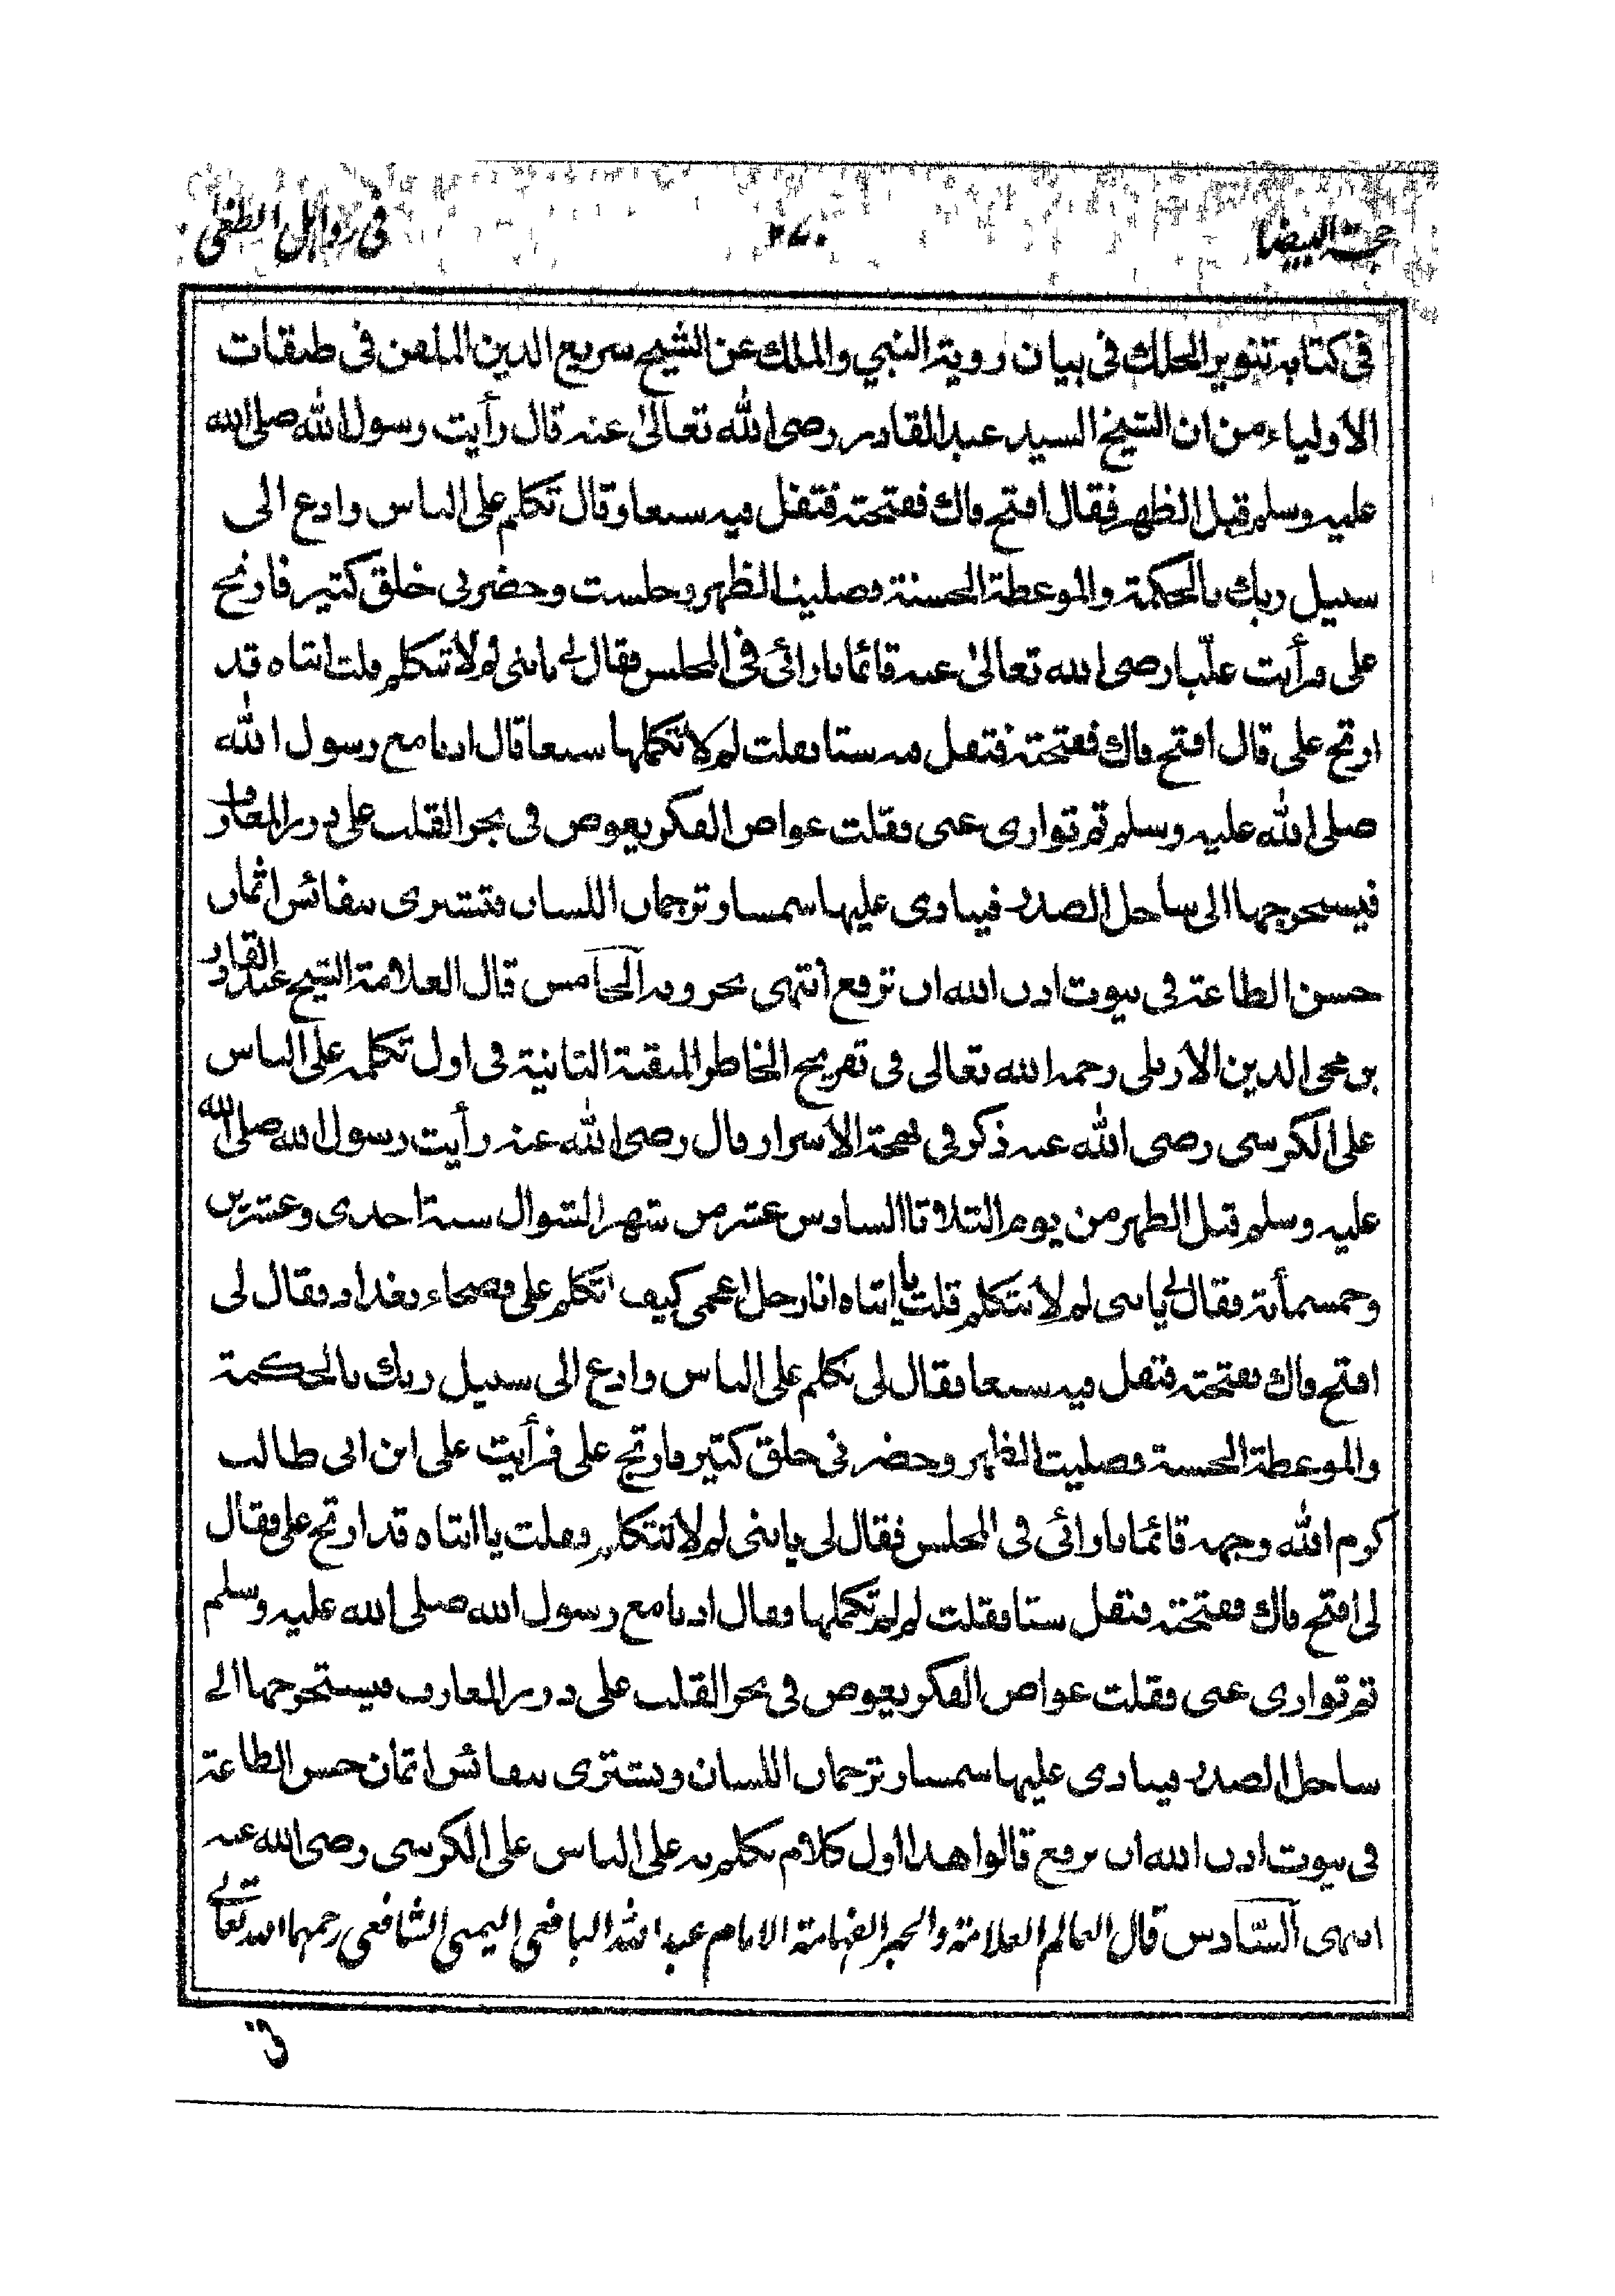 حجة البيضا ٢٤٠ في
في كتابه تنوير الحلك في بيان روية النبي والملك عن الشيخ سريع الدين الملقن في طبقات
الأولياء من ان الشيخ السيد عبد القادر رضي الله تعالى عنه قال رأيت رسول الله صلى الله
عليه وسلم قبل الظهر فقال افتح فاك ففتحته فتفل فيه سبعا وقال تكلم على الناس وادع الى
سبيل ربك بالحكمة والموعظة الحسنة فصلينا الظهر وجلست وحضر لي خلق كثير فارتج
على فرأيت عليا رضي الله تعالى عنه قائما بارائي في المجلس فقال لي يا بني لم لا تتكلم قلت ابتاه قد
ارتج على قال افتح فاك ففتحته فتفل فيه ستا فقلت لم لا تكملها سبعا قال ادبا مع رسول الله
صلى الله عليه وسلم ثم توارى عنى فقلت غواص الفكر يغوص في بحر القلب على درر المعارف
فيستخرجها الى ساحل الصدر فينادى عليها سمسار ترجمان اللسان فتشترى بنفائس اثمان
حسن الطاعة في بيوت اذن الله ان ترفع انتهى بحروفه الخامس قال العلامة الشيخ عبد القادر
بن محى الدين الأربلى رحمه الله تعالى في تفريح الخاطر المنقبة الثانية في اول تكلمه على الناس
على الكرسى رضى الله عنه ذكر في بهجة الأسرار قال رضى الله عنه رأيت رسول الله صلى الله
عليه وسلم قبل الظهر من يوم الثلاثا السادس عشر من شهر الشوال سنة احدى وعشرين
وخمسمأة فقال لي يا بنى لم لا تتكلم قلت يا ابتاه انا رجل اعجمى كيف اتكلم على فصحاء بغداد فقال لى
افتح فاك ففتحته فتفل فيه سبعا فقال لى تكلم على الناس وادع الى سبيل ربك بالحكمة
والموعظة الحسنة فصليت الظهر وحضرنى خلق كثير فارتج على فرأيت على ابن ابى طالب
كرم الله وجهه قائما بارائى في المجلس فقال لى يا بنى لم لا تتكلم فقلت يا ابتاه قد ارتج على فقال
لى افتح فاك ففتحته فتفل ستا فقلت لم لم تكملها فقال ادبا مع رسول الله صلى الله عليه وسلم
ثم توارى عنى فقلت غواص الفكر يغوص في بحر القلب على درر المعارف فيستخرجها الے
ساحل الصدر فينادى عليها سمسار ترجمان اللسان وتشترى بنفائس اثمان حسن الطاعة
في بيوت اذن الله ان ترفع قالوا هذا اول كلام تكلم به على الناس على الكرسى رضى الله عنه
انتهى السادس قال العالم العلامة والحبر الفهامة الامام عبد الله اليافعى اليمنى الشافعى رحمهما الله تعالے